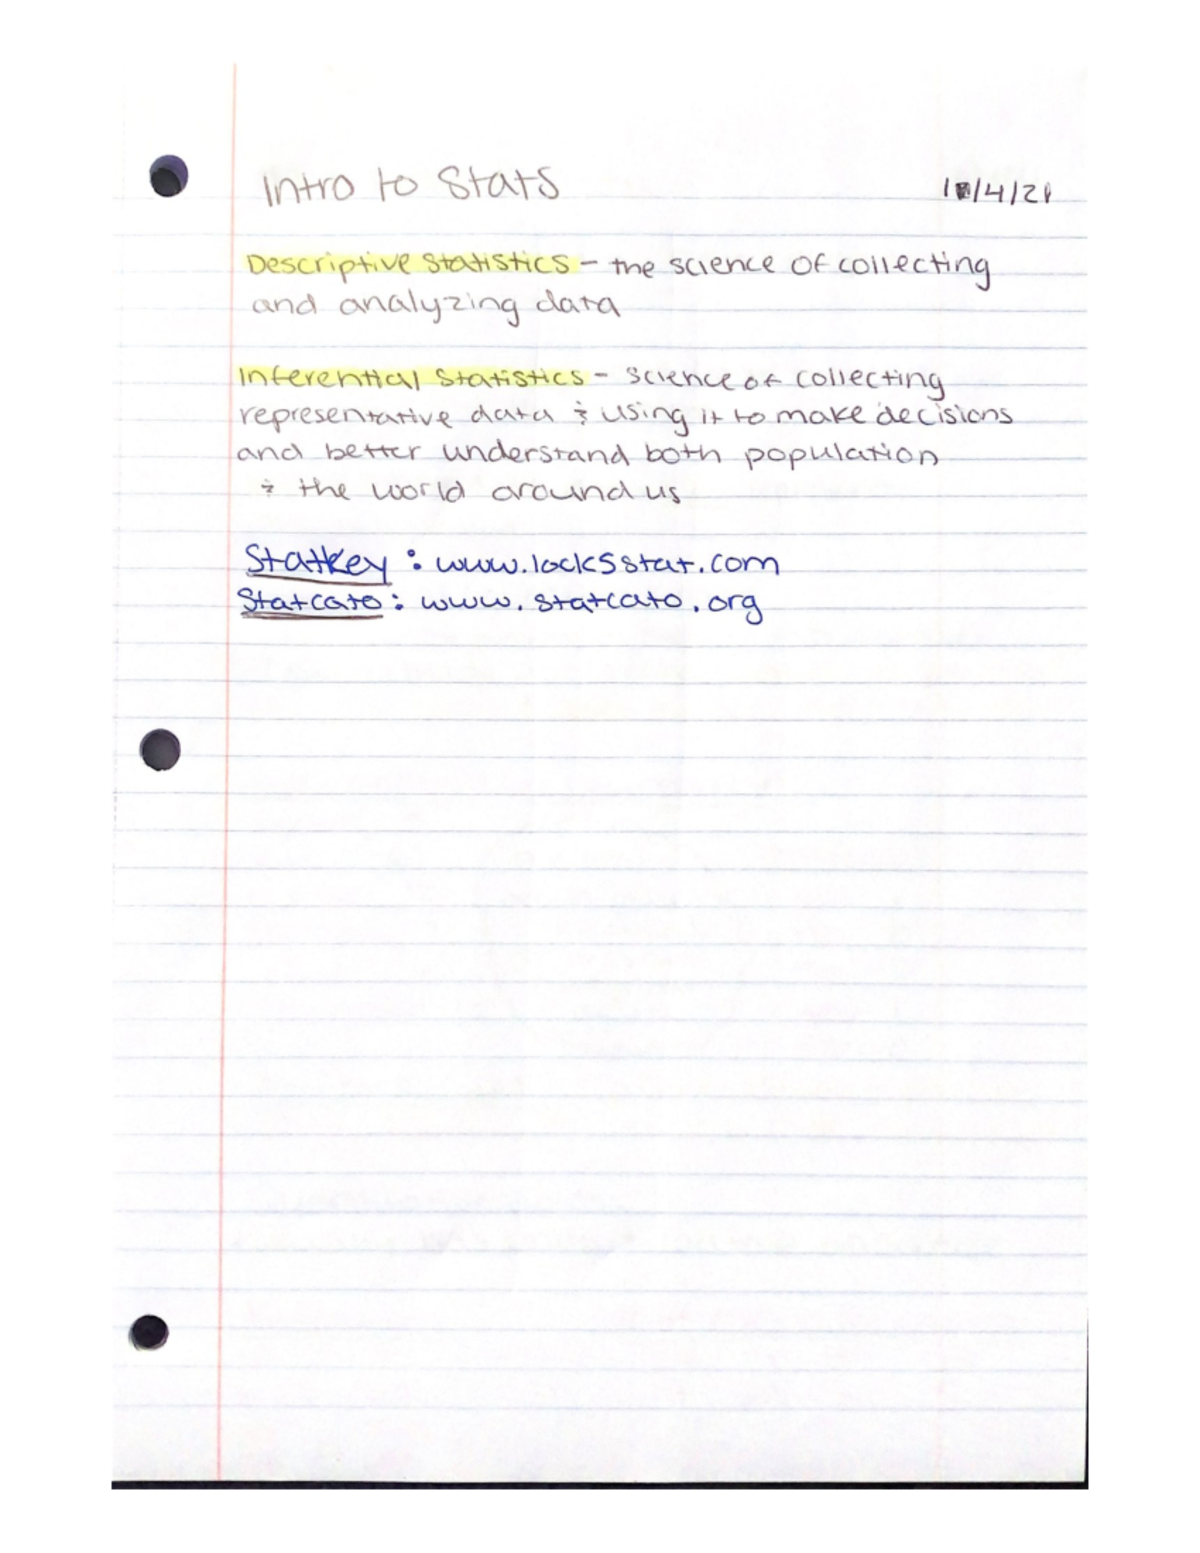 Intro to Stats
/4/21
Descriptive Statistics - the science of collecting
and analyzing data
Inferential Statistics - science of collecting
representative data & using it to make decisions
and better understand both population
& the world around us
Statkey : www.lock5stat.com
Statcato : www.statcato.org